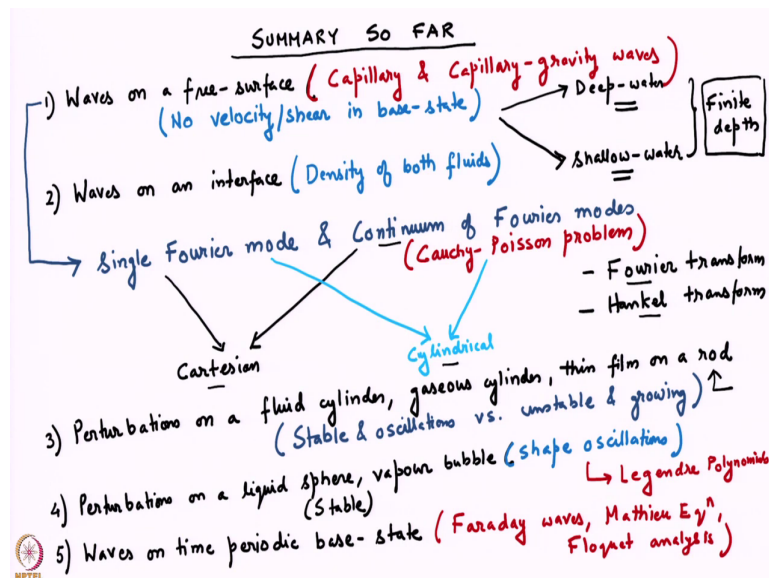 SUMMARY SO FAR
1) Waves on a free-surface (Capillary & Capillary-gravity waves)
(No velocity/shear in base-state)
Deep-water
Shallow-water
Finite depth
2) Waves on an interface (Density of both fluids)
Single Fourier mode & Continuum of Fourier modes
(Cauchy-Poisson problem)
- Fourier transform
- Hankel transform
Cartesian
Cylindrical
3) Perturbations on a fluid cylinder, gaseous cylinder, thin film on a rod
(Stable & oscillations vs. unstable & growing)
4) Perturbations on a liquid sphere, vapour bubble (shape oscillations)
(Stable)
Legendre Polynomials
5) Waves on time periodic base-state (Faraday waves, Mathieu Eqⁿ,
Floquet analysis)
NPTEL